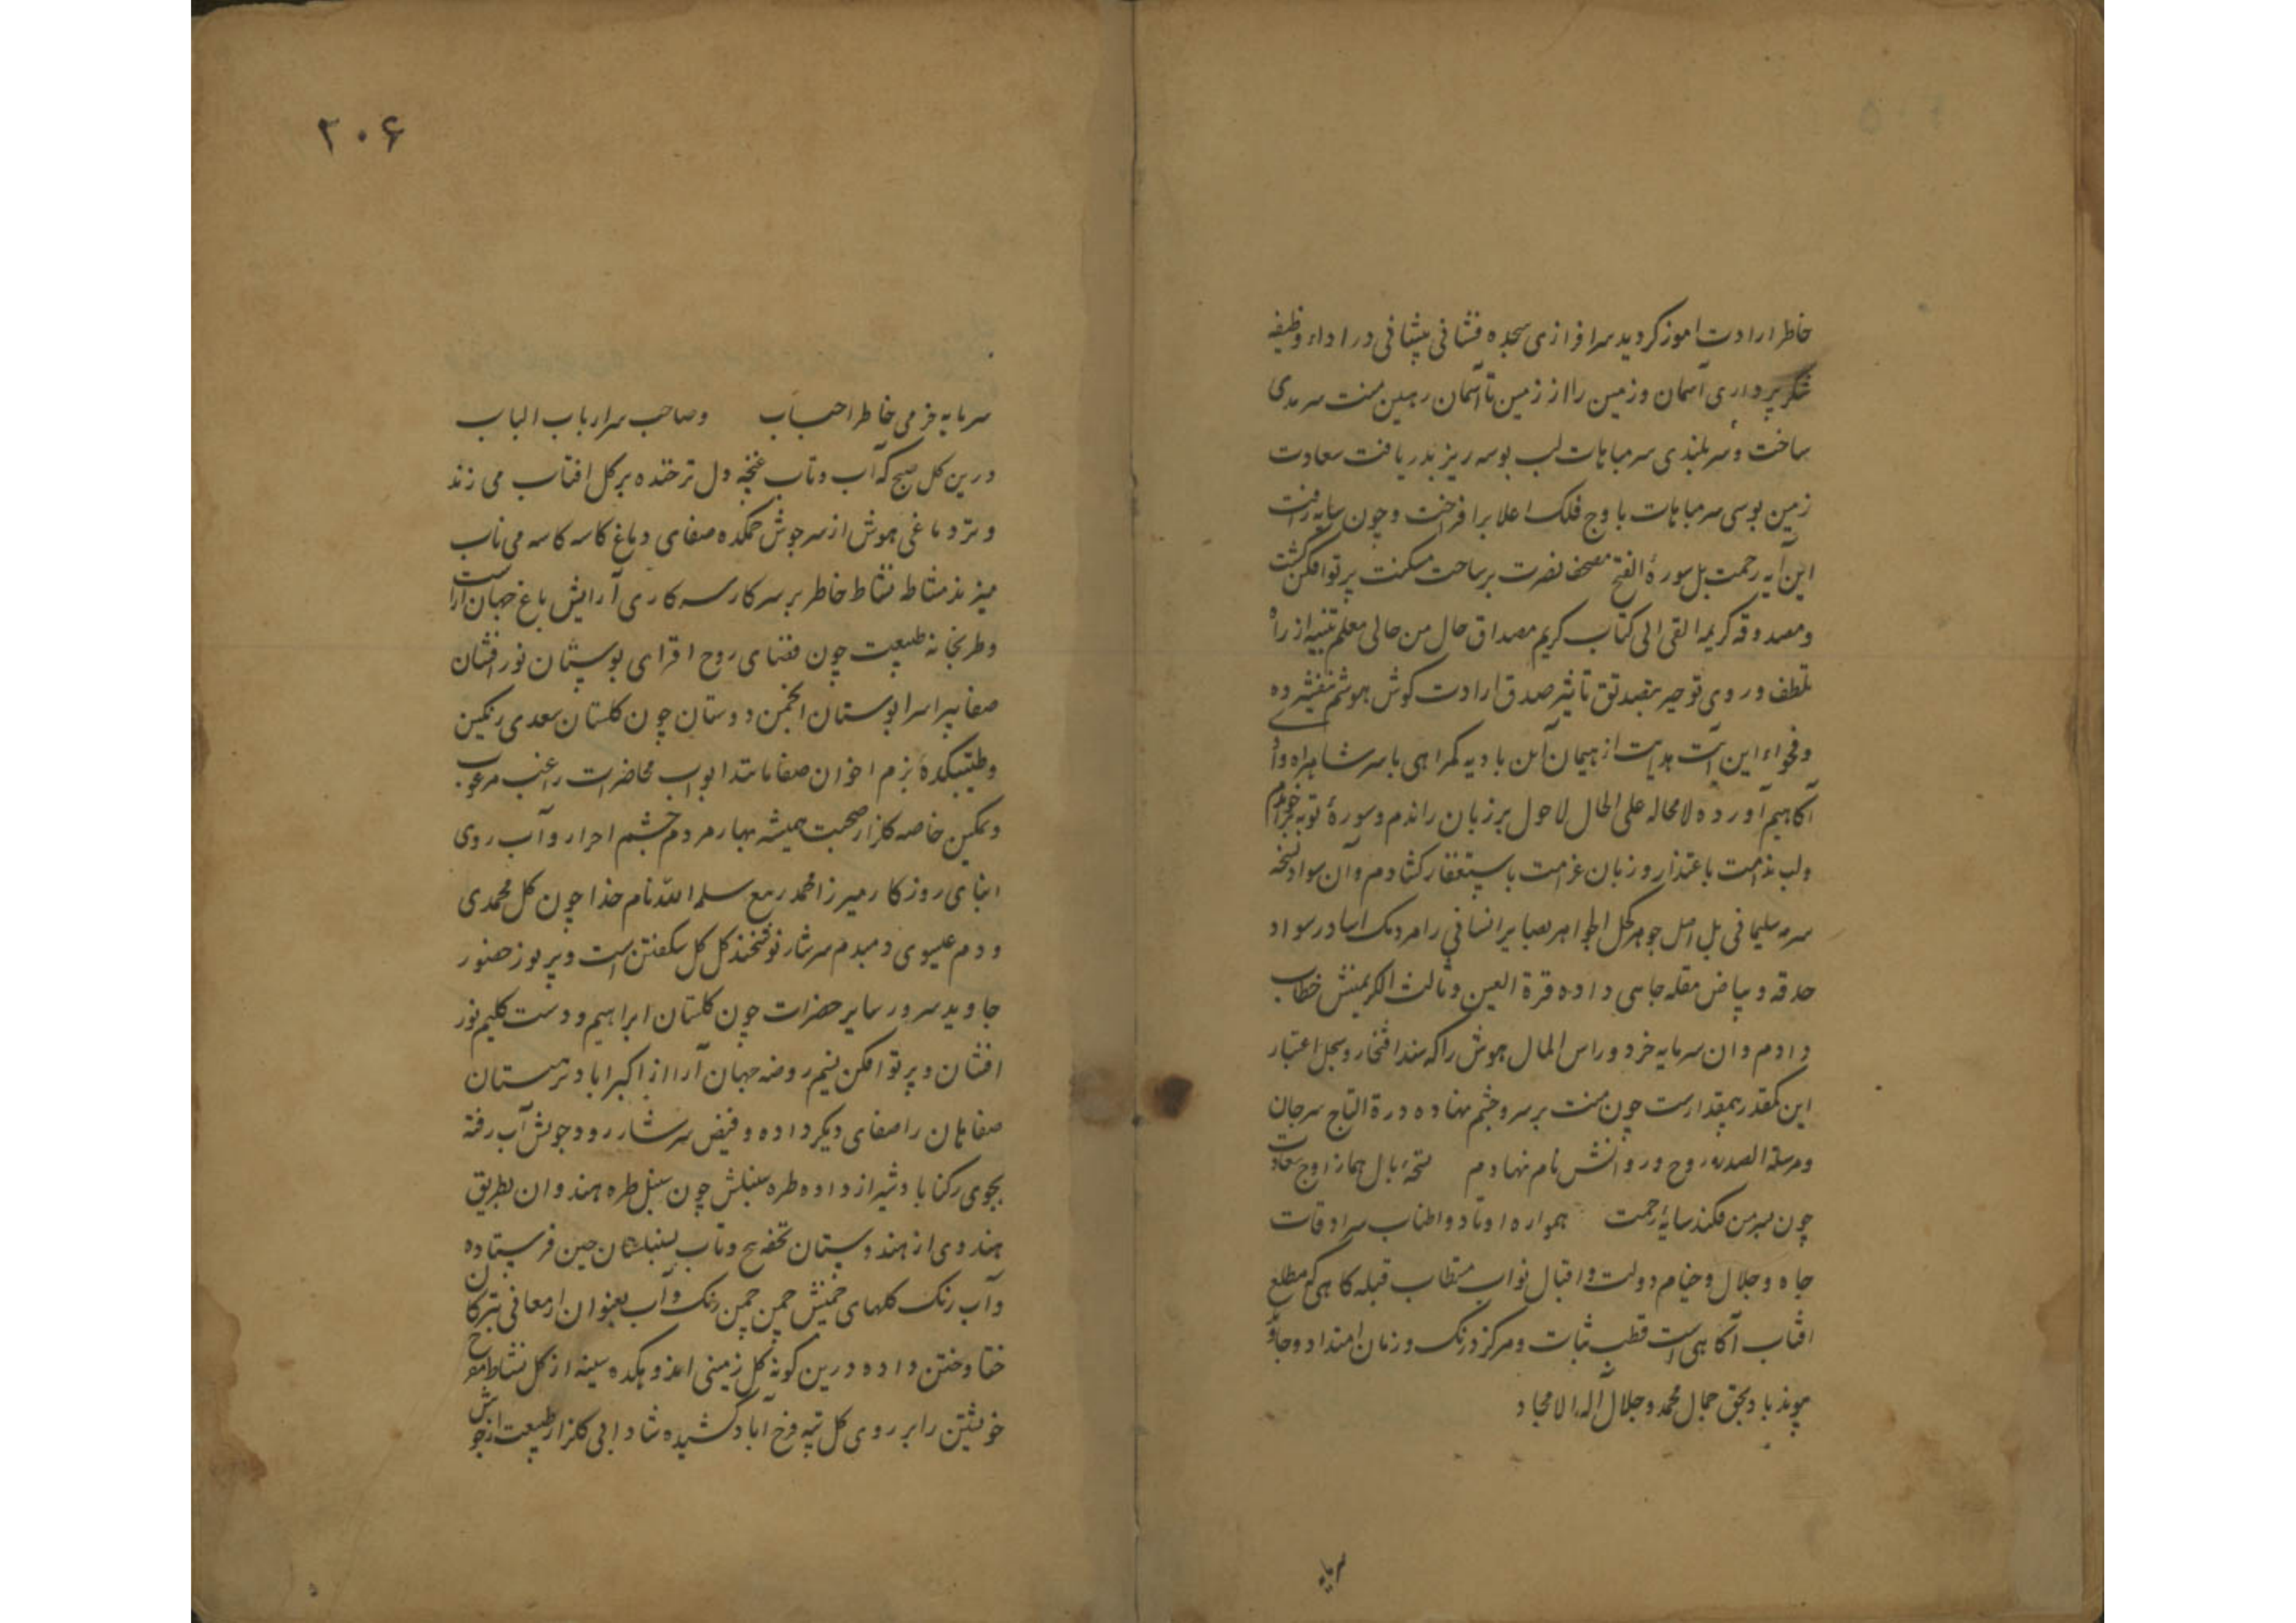 خاطر ارادت اموز کردید سرافرازی سجده فشانی پیشانی در اداء وظیفه
شکر پرداری آسمان وزمین را از زمین تا آسمان رهین منت سرمدی
ساخت وسر بلندی سر مباهات لب بوسه ریز بدریافت سعادت
زمین بوسی سر مباهات باوج فلک اعلا برافراخت وچون سایه رافت
این آیه رحمت بل سورهٔ الفتح مصحف نصرت بر ساحت مسکنت پرتو افکن کشت
ومصدوقه کریمه القی الی کتاب کریم مصداق حال من حالی معلم تنبیه از راه
تلطف وروی توجیر بتأثیر صدق ارادت کوش هوشم
وفحواء این آیت هدایت از هیمان این بادیه کمراهی با سر شاهراه
آکاهیم آورده لامحاله علی الحال لاحول بر زبان راندم وسورهٔ توبه
ولب ندامت باعتذار وزبان غرامت باستغفار کشادم وآن سواد نسخه
سرمه سلیمانی بل اصل جوهر کحل الجواهر بصایر انسانی را مردمک اسا در سواد
حدقه وبیاض مقله جاهی داده قرة العین وثالث الکریمتش خطاب
دادم وان سرمایه خرد وراس المال هوش را که سند افتخار وسجل اعتبار
این کمقدر بیمقدارست چون منت بر سر وچشم نهاده درة التاج سر جان
ومرسلة الصدر روح وروانش نام نهادم بال هما ز اوج سعادت
چون بسر من فکند سایهٔ رحمت همواره اوتاد واطناب سرادقات
جاه وجلال وخیام دولت واقبال نواب مستطاب قبله کاهی که مطلع
افتاب آکاهی است قطب ثبات ومرکز درنک وزمان امتداد وجاوید
پیوند باد بحق جمال محمد وجلال آله الامجاد
سرمایه
۲۰۶
سرمایه خرمی خاطر احباب وصاحب سرار باب الباب
درین کل صبح که آب وتاب غنچه دل تر خنده بر کل افتاب می زند
وتر دماغی هوش از سرجوش خمکده صفای دماغ کاسه کاسه می ناب
میزند مشاط نشاط خاطر بر سر کار سرکاری آرایش باغ جهان آراست
وطربخانه طبیعت چون فضای روح افزای بوستان نور افشان
صفا پیرا سرا بوستان انجمن دوستان چون کلستان سعدی رنکین
وطیبتکدهٔ بزم اخوان صفا مانند ابواب محاضرات راغب مرغوب
ونمکین خاصه کلزار صحبت همیشه بهار مردم چشم احرار وآب روی
ابنای روزکار میرزا محمد ربیع سلمه الله نام خدا چون کل محمدی
ودم عیسوی دمبدم سرشار نوشخند کل کل شکفتن است وپرپوز حضور
جاوید سرور سایر حضرات چون کلستان ابراهیم ودست کلیم نور
افشان وپرتو افکن نسیم روضه جهان آرا از اکبراباد نرهستان
صفاهان را صفای دیکر داده وفیض سرشار رود جوش آب رفته
بجوی رکناباد شیراز داده طره سنبلش چون سنبل طره هندوان بطریق
هندوی از هندوستان تحفه پیچ وتاب بسنبلستان چین فرستاده
وآب رنک کلهای چمنش چمن چمن رنک وآب بعنوان ارمغانی بترکان
ختا وختن داده درین کونه کل زمینی سینه از کل نشاط
خویشتن را بر روی کل تپه فرح آباد کشیده شادابی کلزار طبیعت از جوش